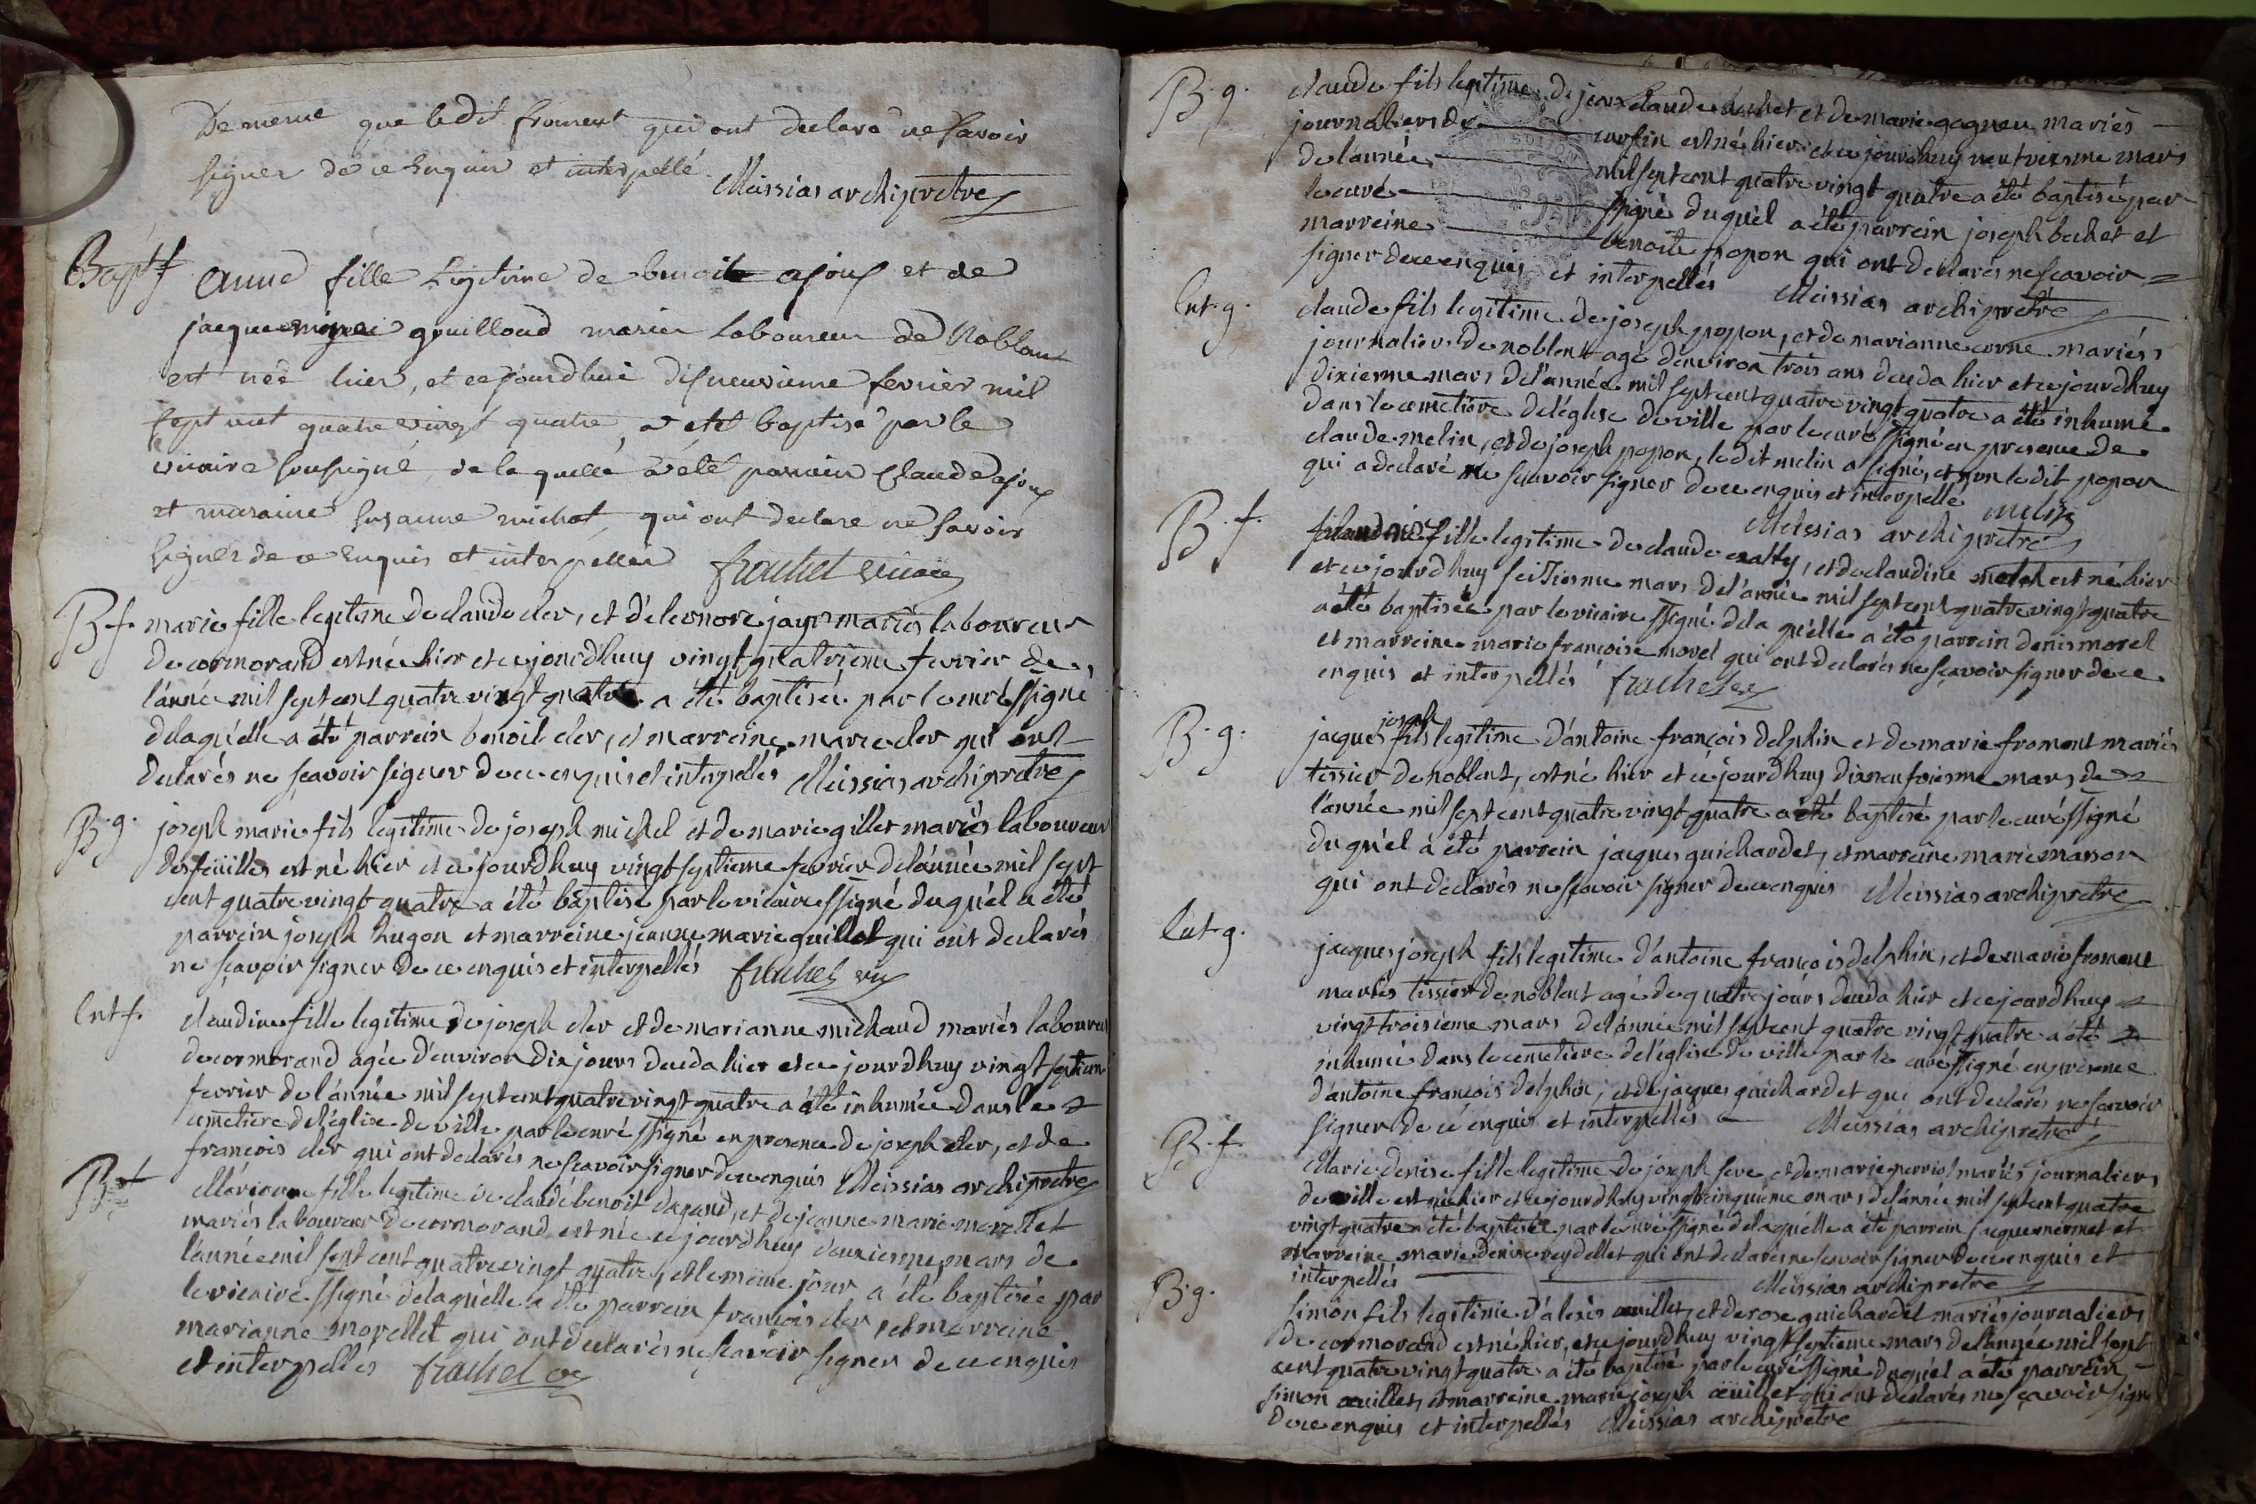 De meme que ledit froment qui ont declaré ne savoir
signer de ce enquis et interpellé.
Meissias archipretre
Bapt f
anne fille Legitime de benoit ajoux et de
jacquemine guilloud mariés Laboureur de Noblant
est née hier, et cejourdhui disneuvieme fevrier mil
sept cent quatre vingt quatre, a eté baptisé par le
vicaire soussigné, de la quelle a été parrain Claude ajoux
et maraine susanne michot, qui ont declare ne savoir
signer de ce enquis et interpellés frachet vicaire
B. f.
marie fille legitime de claude cler, et d'éleonore jayr mariés laboureur
de cormorand est née hier et cejourdhuy vingt quatrieme fevrier de
l'année mil sept cent quatre vingt quatre a été baptisée par le curé ssigné
de laquélle a été parrein benoit cler, et marreine marie cler qui ont
declarés ne sçavoir signer de ce enquis et interpellés Meissias archipretre
B. g.
joseph marie fils legitime de joseph michel et de marie gillet mariés laboureur
des feüilles est né hier et cejourdhuy vingt septieme fevrier de l'année mil sept
cent quatre vingt quatre a été baptisé par le vicaire ssigné duquél a été
parrein joseph hugon et marreine jeanne marie guillot qui ont declarés
ne sçavoir signer de ce enquis et interpellés frachet vic
Ent f.
claudine fille legitime de joseph cler et de marianne michaud mariés laboureur
de cormorand agée d'environ dix jours deceda hier et cejourdhuy vingt septieme
fevrier de l'année mil sept cent quatre vingt quatre a été inhumée dans le
cemetiere de l'église de ville par le curé ssigné en presence de joseph cler, et de
francois cler qui ont declarés ne sçavoir signer de ce enquis Meissias archipretre
B. f.
Marianne fille legitime de claude benoit dagand, et de jeanne marie morellet
mariés laboureur de cormorand est née cejourdhuy deuxiesme mars de
l'année mil sept cent quatre vingt quatre, et le même jour a été baptisée par
le vicaire ssigné de laquélle a été parrein françois cler, et marreine
marianne morellet qui ont declarés ne sçavoir signer de ce enquis
et interpellés frachet vic
B. g.
claude fils legitime de jean claude buchet et de marie gagneu mariés
journaliers de curfin est né hier et cejourdhuy neufviesme mars
de l'année mil sept cent quatre vingt quatre a été baptisé par
le curé ssigné duquél a été parrein joseph buchet et
marreine benoite popon qui ont declarés ne sçavoir
signer de ce enquis et interpellés Meissias archipretre
Ent. g.
claude fils legitime de joseph popon, et de marianne corne mariés
journalier de noblent agé d'environ trois ans deceda hier et cejourdhuy
dixiesme mars de l'année mil sept cent quatre vingt quatre a été inhumé
dans le cemetiere de l'église de ville par le curé ssigné en presence de
claude melin, et de joseph popon, le dit melin a signé, et non le dit popon
qui a declaré ne sçavoir signer de ce enquis et interpellé melin
Meissias archipretre
B. f.
claudine fille legitime de claude, et de claudine est né hier
et cejourdhuy seiziesme mars de l'année mil sept cent quatre vingt quatre
a été baptisée par le vicaire ssigné de la quélle a été parrein denis morel
et marreine marie francoise morel qui ont declarés ne sçavoir signer de ce
enquis et interpellés frachet vic
B. g.
joseph
jacques fils legitime d'antoine françois delphin et de marie froment mariés
tissier de noblent, est né hier et cejourdhuy dixneufviesme mars de
l'année mil sept cent quatre vingt quatre a été baptisé par le curé ssigné
du quél a été parrein jacques guichardet, et marreine marie masson
qui ont declarés ne sçavoir signer de ce enquis Meissias archipretre
Ent. g.
jacques joseph fils legitime d'antoine françois delphin, et de marie froment
mariés tissier de noblent agé de quatre jours deceda hier et cejourdhuy
vingt troisieme mars de l'année mil sept cent quatre vingt quatre a été
inhumé dans le cemetiere de l'église de ville par le curé ssigné en presence
d'antoine françois delphin, et de jacques guichardet qui ont declarés ne sçavoir
signer de ce enquis et interpellés Meissias archipretre
B. f.
Marie denise fille legitime de joseph seve et de marie perriol mariés journaliers
de ville est née hier et cejourdhuy vingt cinquieme mars de l'année mil sept cent quatre
vingt quatre a été baptisée par le curé ssigné de laquélle a été parrein jacque nermet et
marreine marie denise reydellet qui ont declarés ne sçavoir signer de ce enquis et
interpellés Meissias archipretre
B. g.
Simon fils legitime d'alexis œuillet, et de rose guichardet mariés journaliers
de cormorand est né hier, et cejourdhuy vingt septieme mars de l'année mil sept
cent quatre vingt quatre a été baptisé par le curé ssigné duquél a été parrein
simon œuillet, et marreine marie joseph œuillet qui ont declarés ne sçavoir signer
de ce enquis et interpellés Meissias archipretre